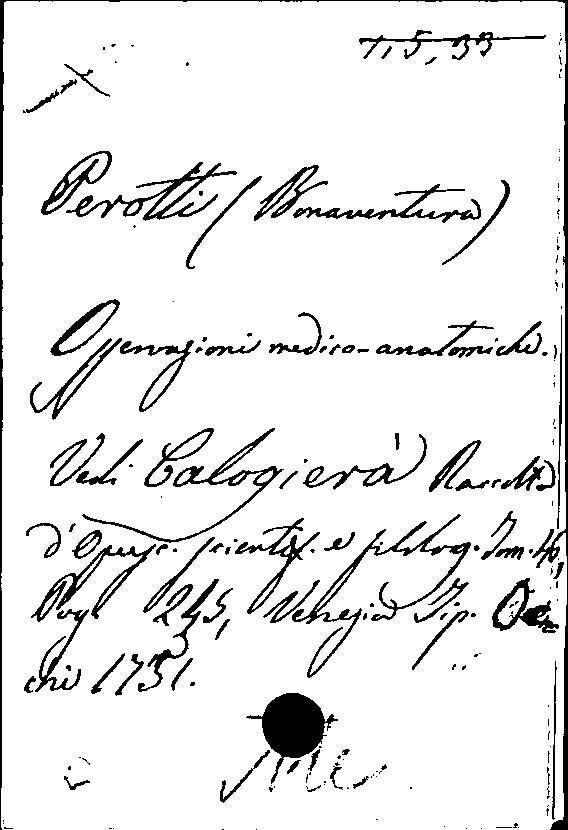 7, 5, 33
Perotti (Bonaventura)
Osservazioni medico-anatomiche.
Vedi Calogierà Raccolta
d'Opusc. scientif. e filolog. Tom. 46,
Pag. 245, Venezia Tip. Oc
chi 1751.